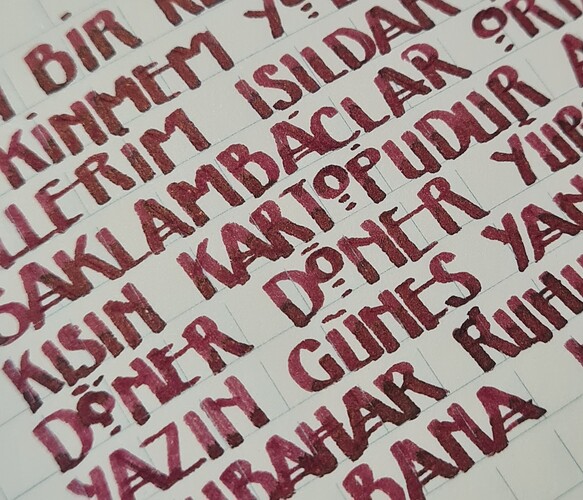 BİR
KİNMEM
LLERİM IŞILDAR
SAKLAMBAÇLAR
KIŞIN KARTOPUDUR
DÖNER DÖNER
YAZIN GÜNEŞ YAN
BAHAR RUHU
BANA